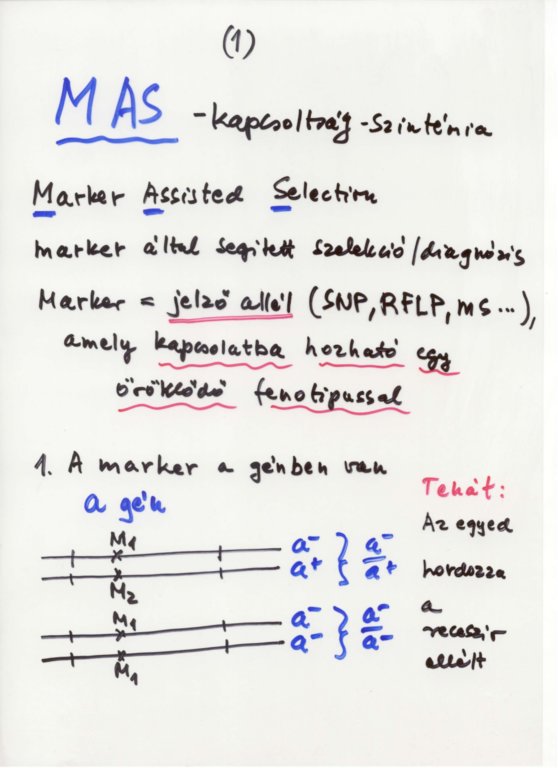 (1)
MAS -kapcsoltság -szinténia
Marker Assisted Selection
marker által segitett szelekció/diagnózis
Marker = jelző allél (SNP, RFLP, ms...),
amely kapcsolatba hozható egy
öröklődő fenotipussal
1. A marker a génben van
a gén
M1
a-
a+
} a-
a+
M2
M1
a-
a-
} a-
a-
M1
Tehát:
Az egyed
hordozza
a
recesszív
allélt